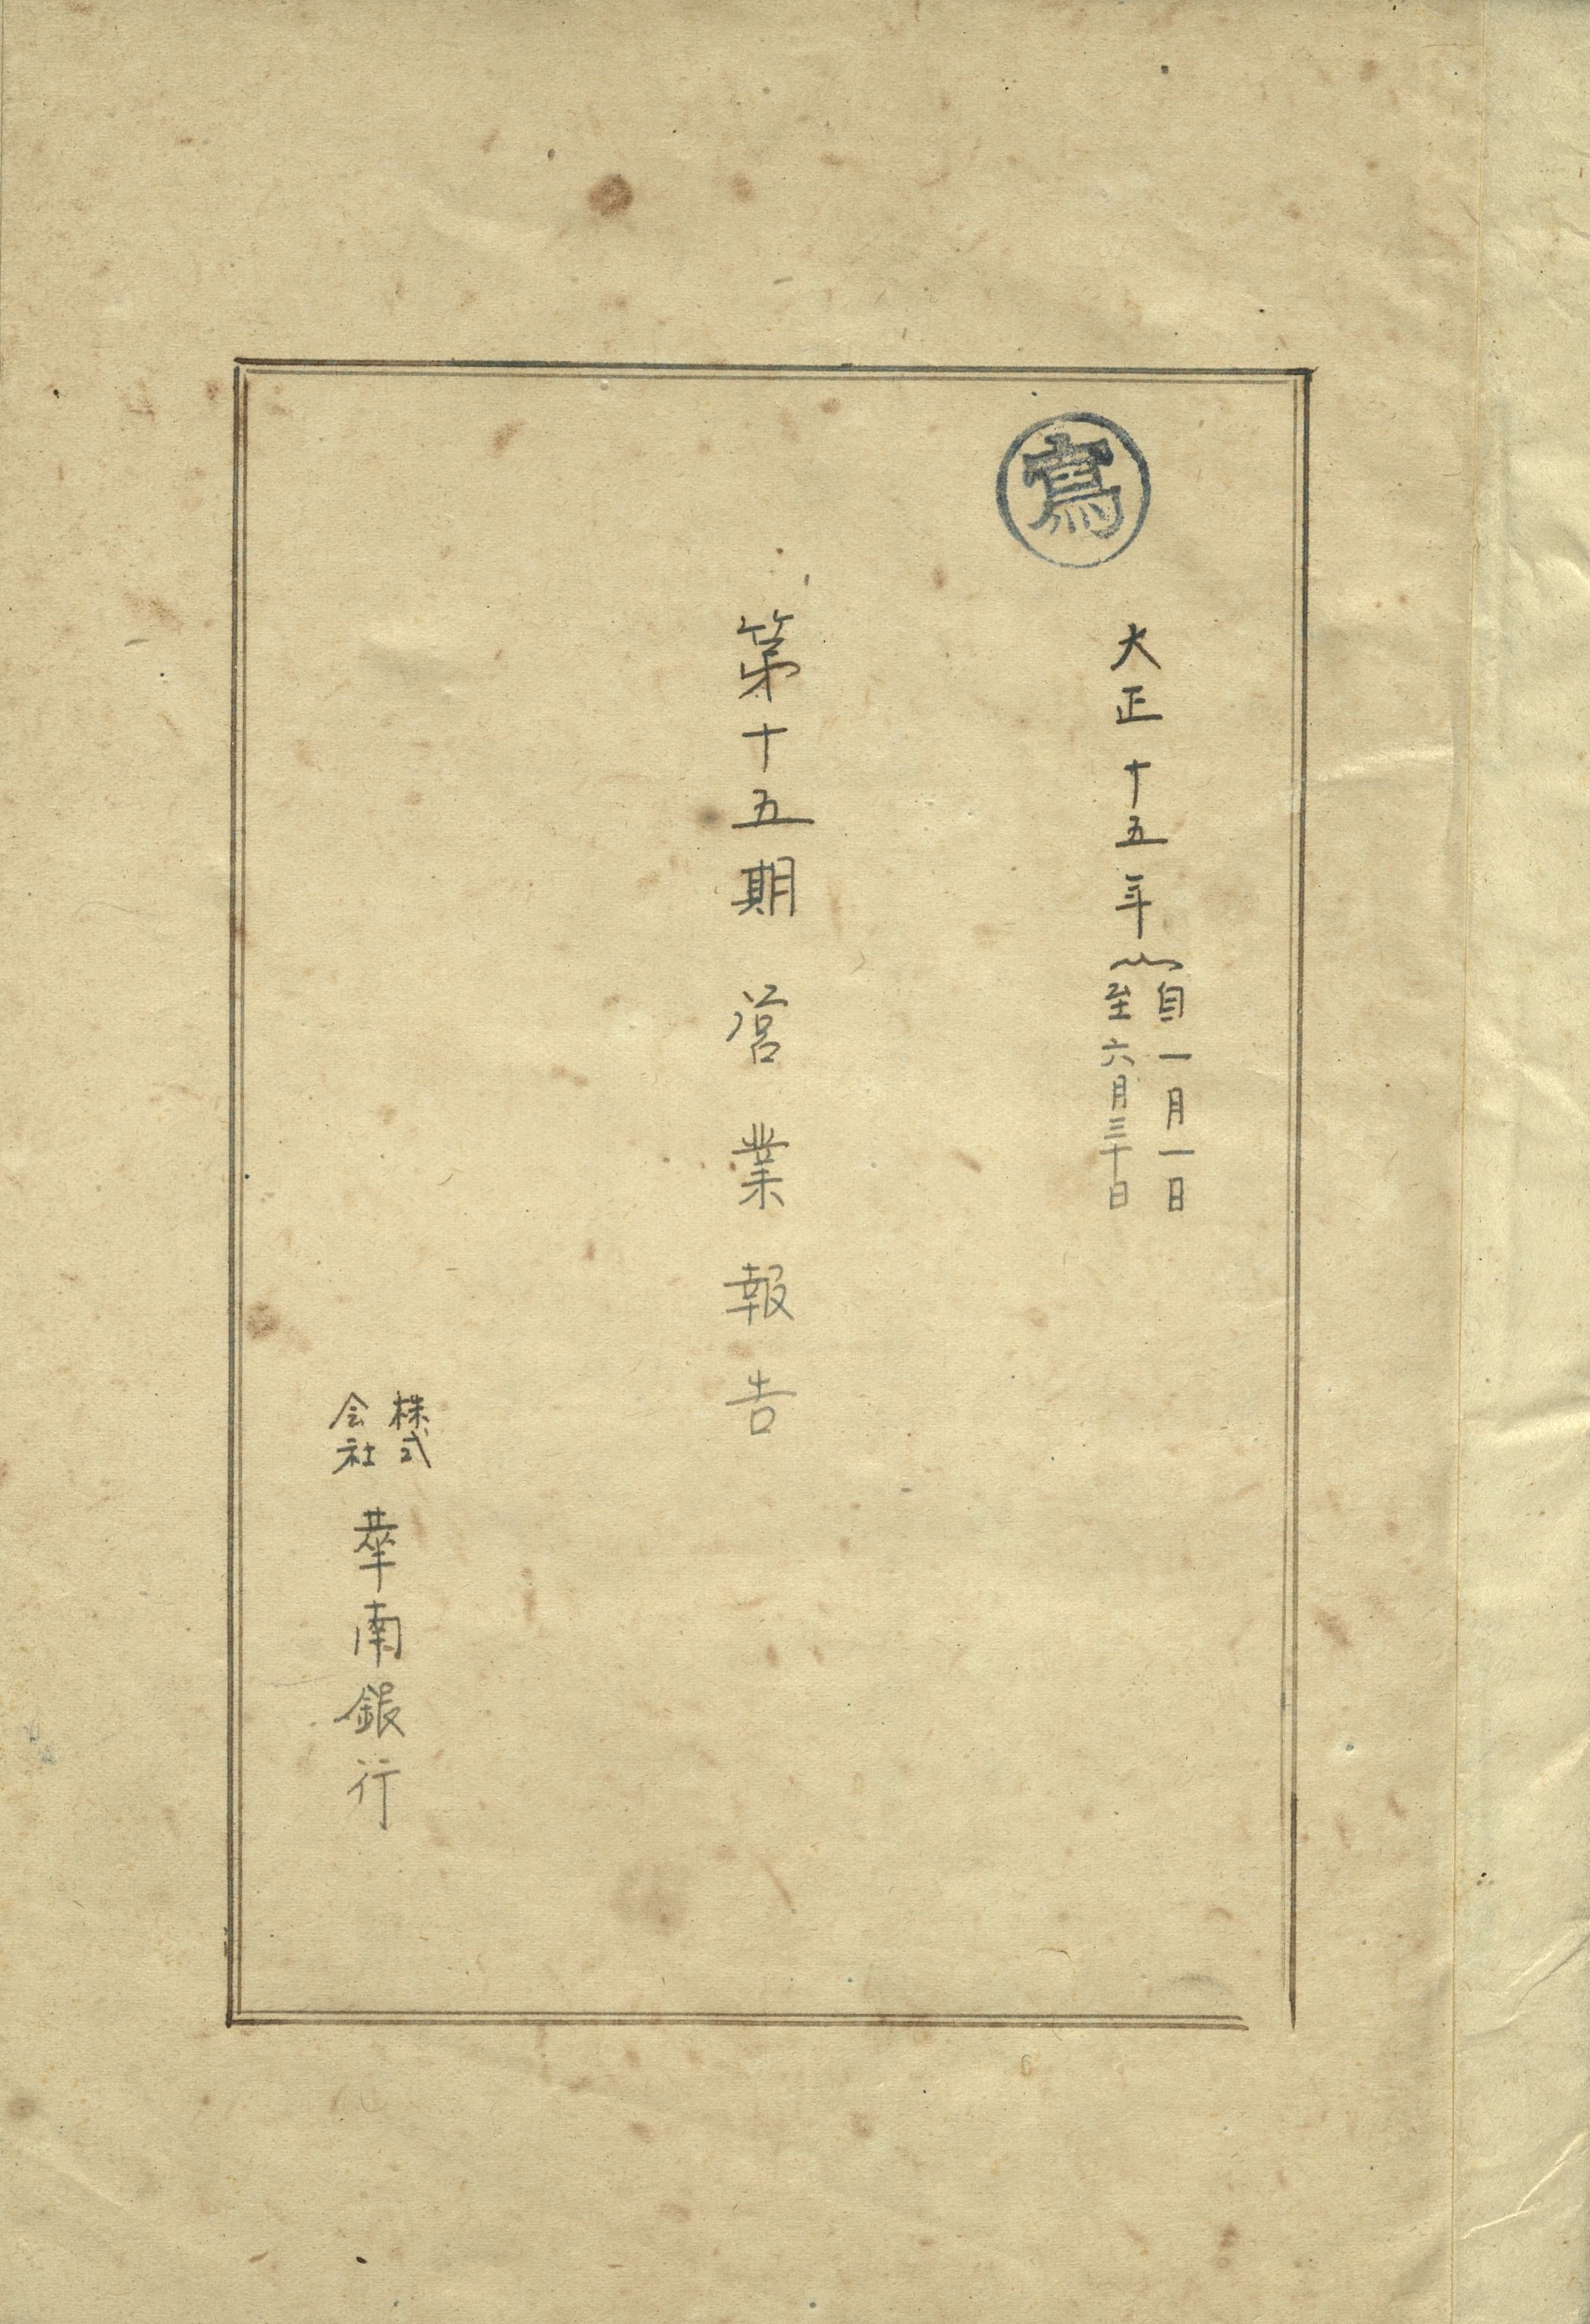 寫
大正十五年
自一月一日
至六月三十日
第十五期営業報告
株式
会社
華南銀行